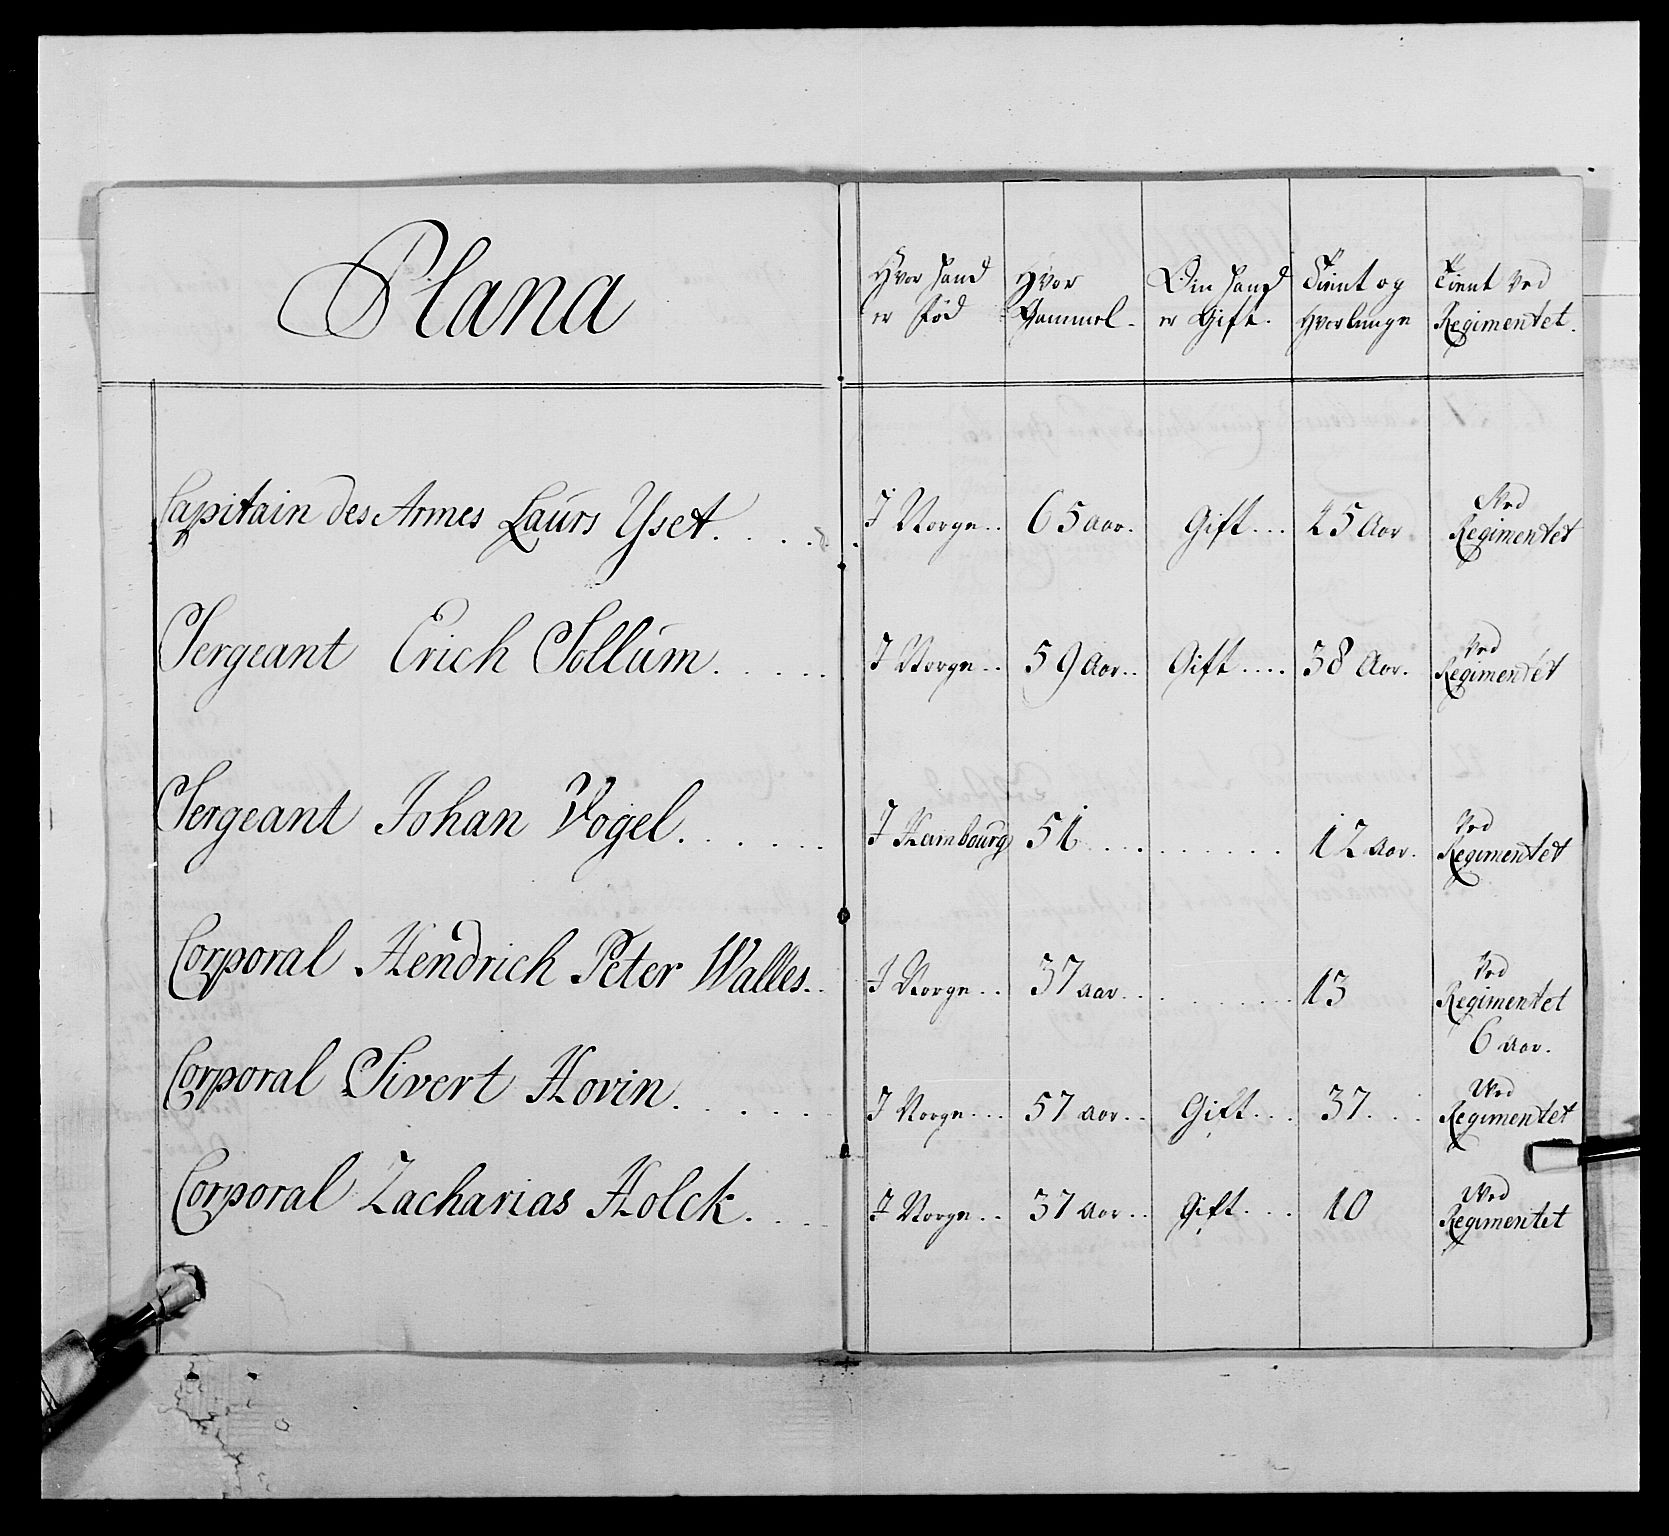 Plana
Hvor hand er Fød
Hvor Gammel.
Om hand er Gift.
Tient og Hvorlenge
Tient Ved Regimentet.
Capitain des Armes Laurs Yset. I Norge.. 65 aar. Gift... 25 Aar Ved Regimentet
Sergeant Erich Sollum. I Norge.. 59 Aar.. Gift.... 38 Aar. Ved Regimentet
Sergeant Johan Vogel. I Hambourg 51 12 Aar. Ved Regimentet
Corporal Hendrich Peter Walles.. I Norge... 37 aar 13 Ved Regimentet 6 Aar.
Corporal Sivert Hovin. I Norge... 57 aar.. Gift... 37. Ved Regimentet
Corporal Zacharias Holck. I Norge... 37 Aar.. Gift... 10 Ved Regimentet